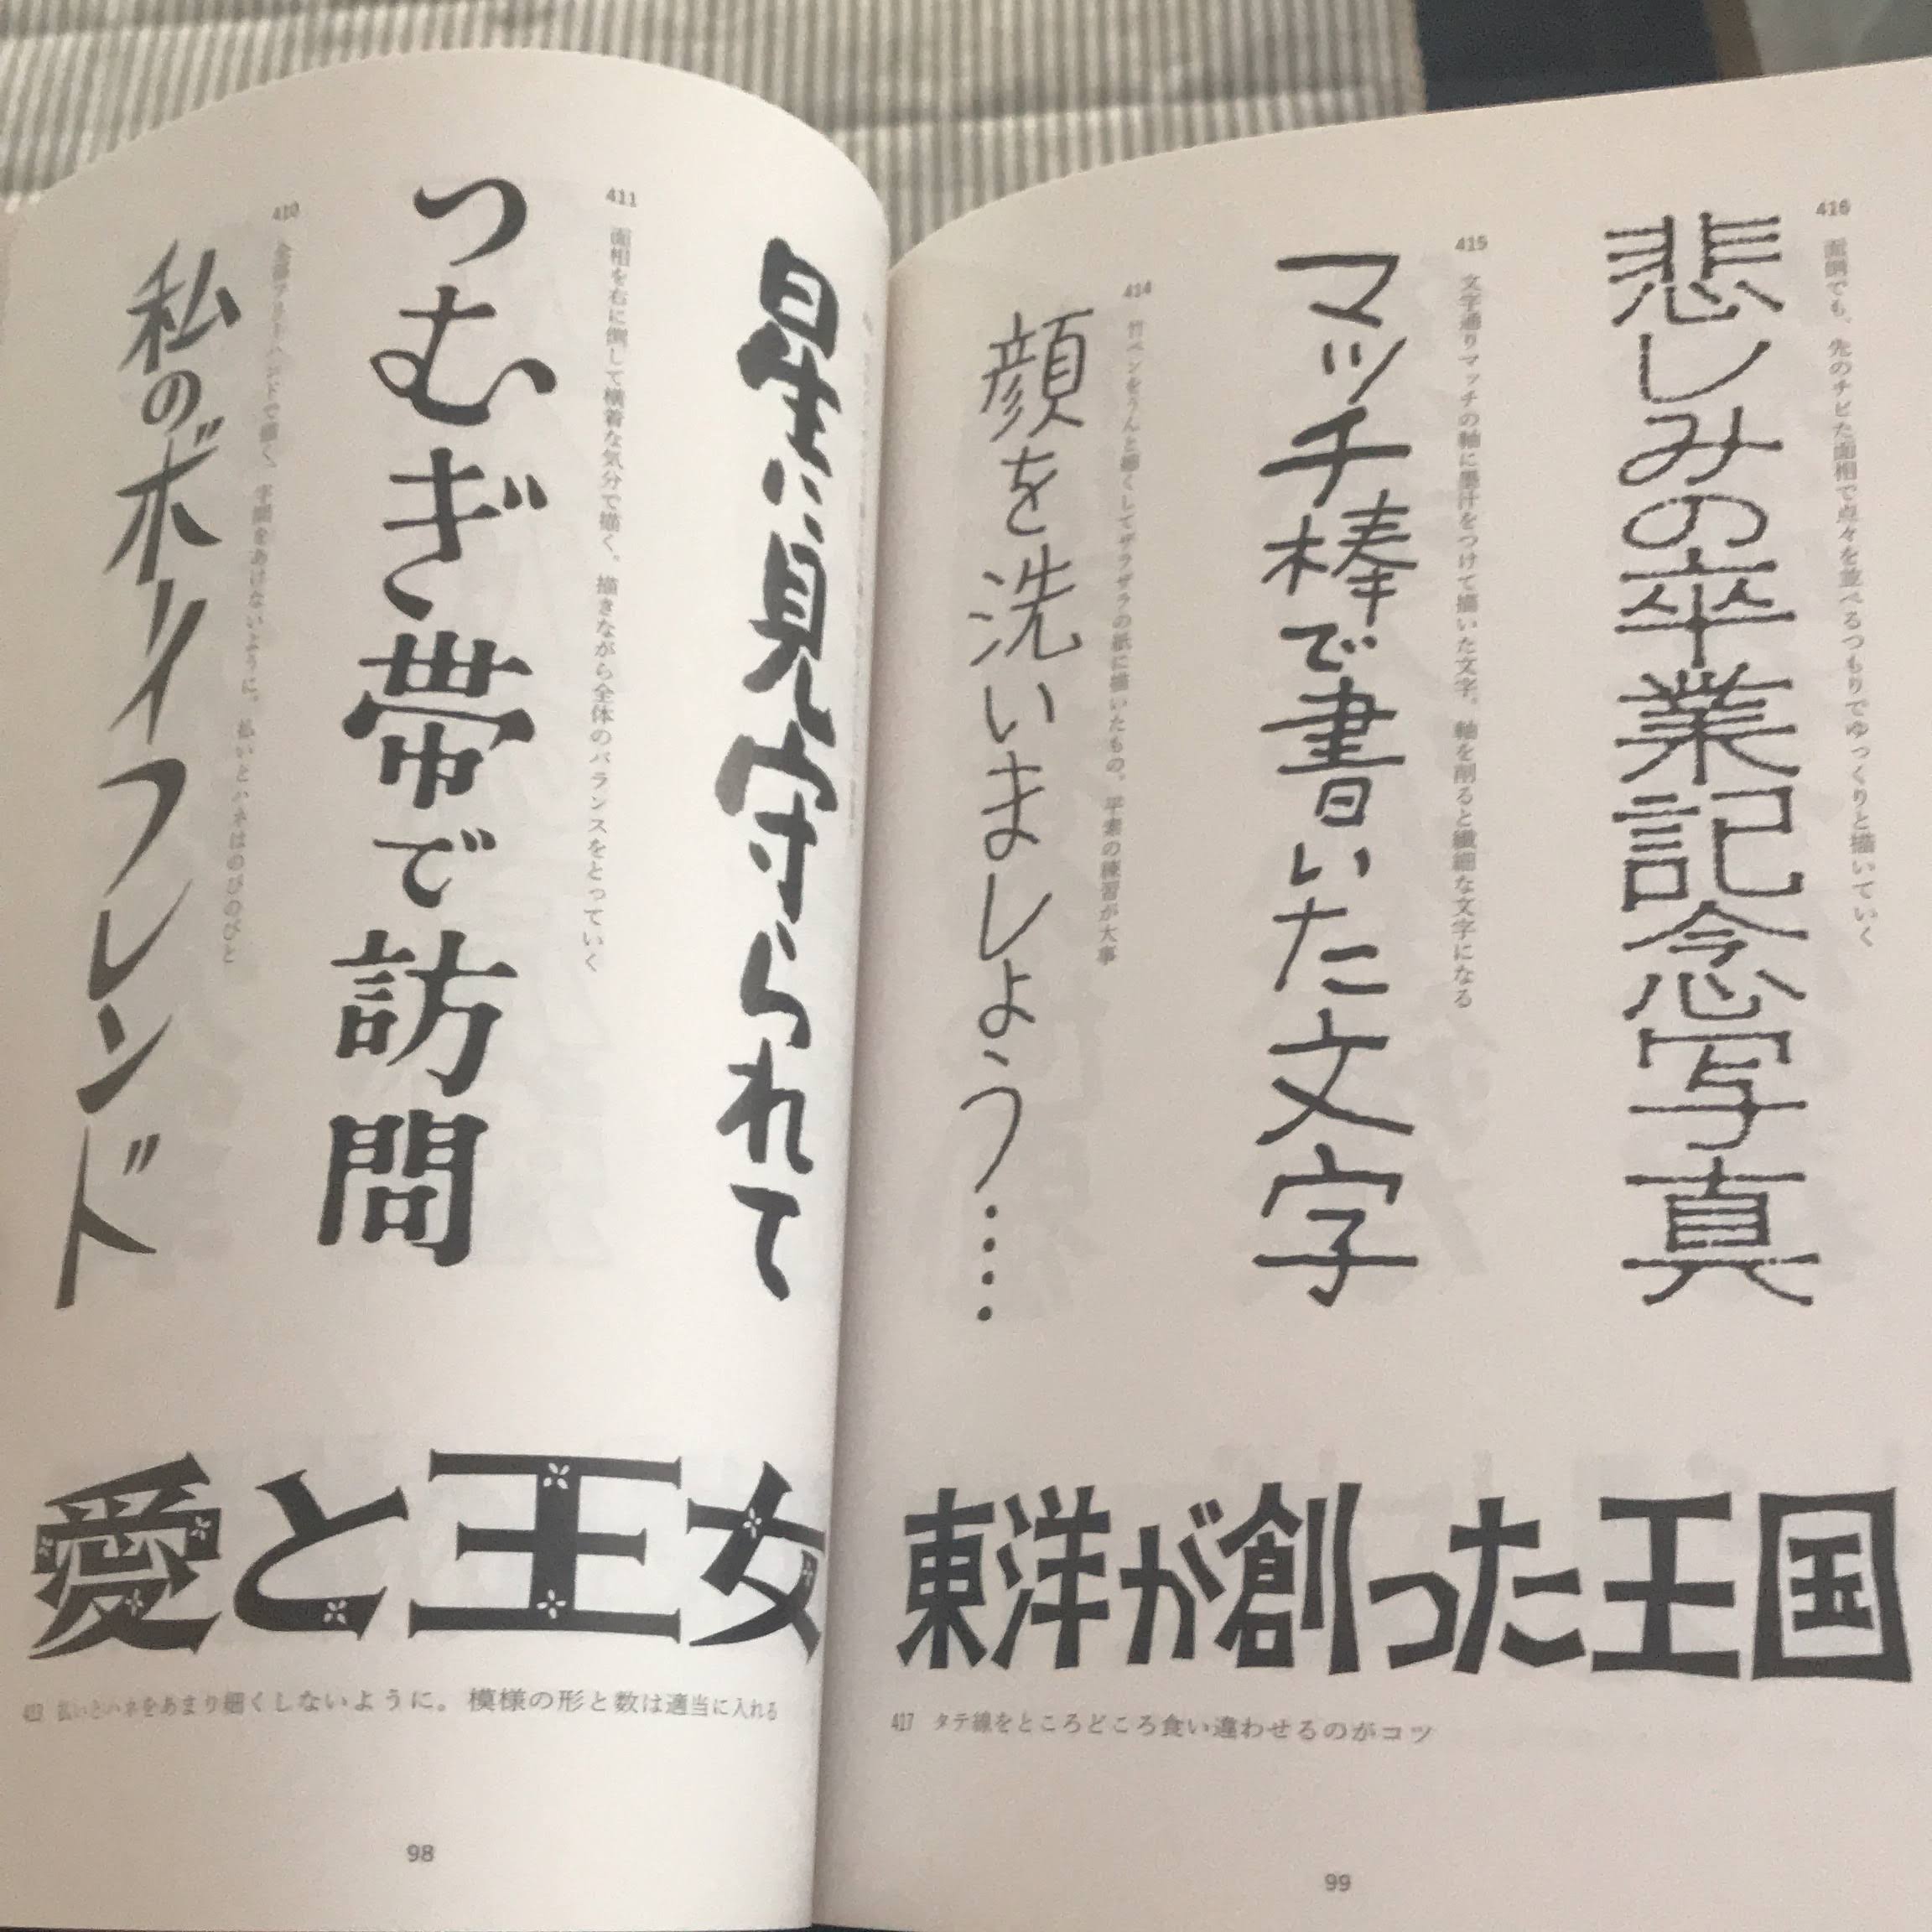 416 面倒でも、先のチビた面相で点々を並べるつもりでゆっくりと描いていく
悲しみの卒業記念写真
415 文字通りマッチの軸に墨汁をつけて描いた文字。軸を削ると繊細な文字になる
マッチ棒で書いた文字
414 竹ペンをうんと細くしてザラザラの紙に描いたもの。平素の練習が大事
顔を洗いましょう‥‥
東洋が創った王国
417 タテ線をところどころ食い違わせるのがコツ
99
星に見守られて
411 面相を右に倒して横着な気分で描く。描きながら全体のバランスをとっていく
つむぎ帯で訪問
410 字間をあけないように。払いとハネはのびのびと
私のボーイフレンド
愛と王女
払いとハネをあまり細くしないように。模様の形と数は適当に入れる
98